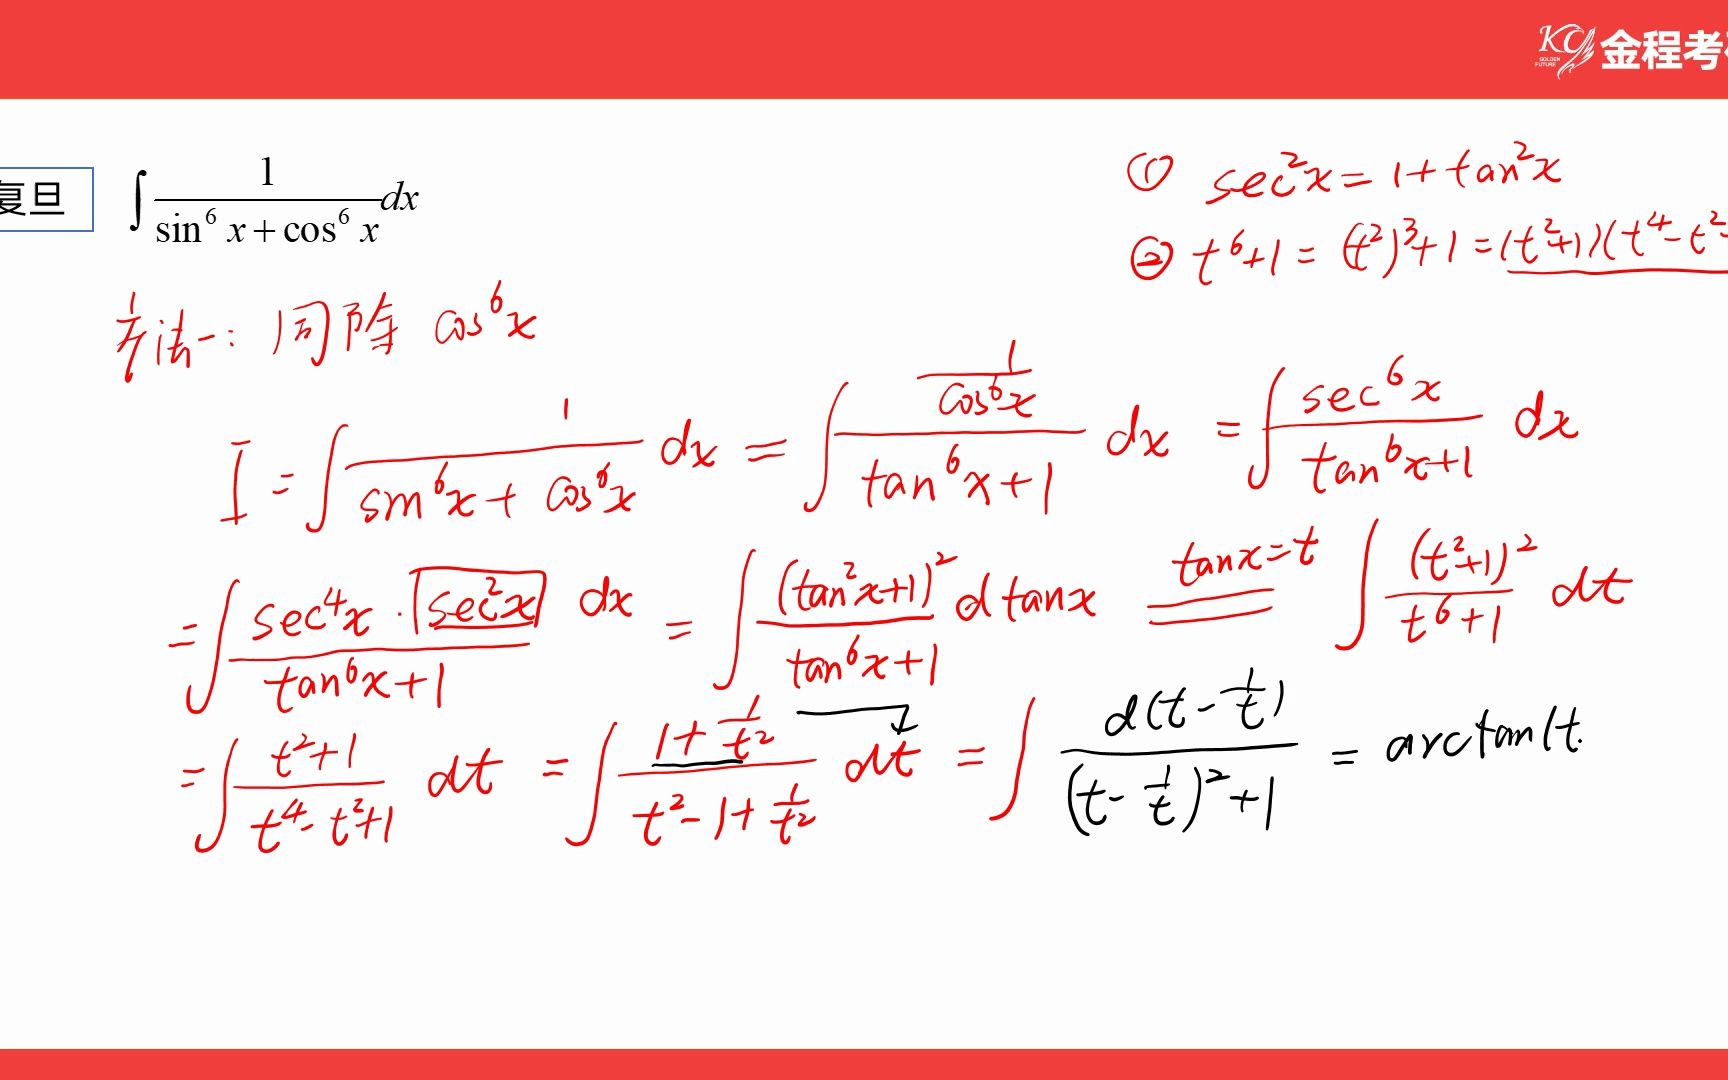 KC GOLDEN FUTURE 金程考
复旦
∫ 1/(sin⁶ x + cos⁶ x) dx
① sec²x = 1 + tan²x
② t⁶+1 = (t²)³+1 = (t²+1)(t⁴-t²
方法一: 同除 cos⁶x
I = ∫ 1/(sin⁶x + cos⁶x) dx = ∫ (1/cos⁶x)/(tan⁶x+1) dx = ∫ sec⁶x/(tan⁶x+1) dx
= ∫ (sec⁴x · sec²x)/(tan⁶x+1) dx = ∫ (tan²x+1)²/(tan⁶x+1) d tanx = tanx=t ∫ (t²+1)²/(t⁶+1) dt
= ∫ (t²+1)/(t⁴-t²+1) dt = ∫ (1+1/t²)/(t²-1+1/t²) dt = ∫ d(t-1/t)/((t-1/t)²+1) = arctan(t